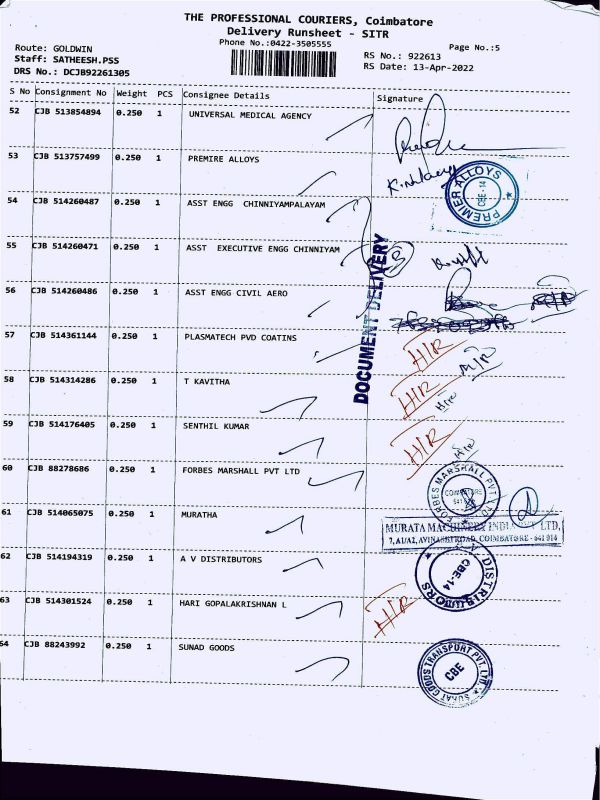 THE PROFESSIONAL COURIERS, Coimbatore
Delivery Runsheet - SITR
Phone No.:0422-3505555
Page No.:5
Route: GOLDWIN
Staff: SATHEESH.PSS
DRS No.: DCJB92261305
RS No.: 922613
RS Date: 13-Apr-2022
S No Consignment No Weight PCS Consignee Details Signature
52 CJB 513854894 0.250 1 UNIVERSAL MEDICAL AGENCY
53 CJB 513757499 0.250 1 PREMIRE ALLOYS
PREMIER ALLOYS CBE-14
54 CJB 514260487 0.250 1 ASST ENGG CHINNIYAMPALAYAM
55 CJB 514260471 0.250 1 ASST EXECUTIVE ENGG CHINNIYAM
DOCUMENT DELIVERY
56 CJB 514260486 0.250 1 ASST ENGG CIVIL AERO
57 CJB 514361144 0.250 1 PLASMATECH PVD COATINS
H/R
58 CJB 514314286 0.250 1 T KAVITHA
H/R
59 CJB 514176405 0.250 1 SENTHIL KUMAR
H/R
60 CJB 88278686 0.250 1 FORBES MARSHALL PVT LTD
FORBES MARSHALL PVT LTD
61 CJB 514065075 0.250 1 MURATHA
MURATA MACHINERY INDIA PVT. LTD,
7, A1/A2, AVINASHI ROAD, COIMBATORE - 641 014
62 CJB 514194319 0.250 1 A V DISTRIBUTORS
A V DISTRIBUTORS CBE-14
63 CJB 514301524 0.250 1 HARI GOPALAKRISHNAN L
H/R
64 CJB 88243992 0.250 1 SUNAD GOODS
GOODS TRANSPORT PVT. LTD. CBE